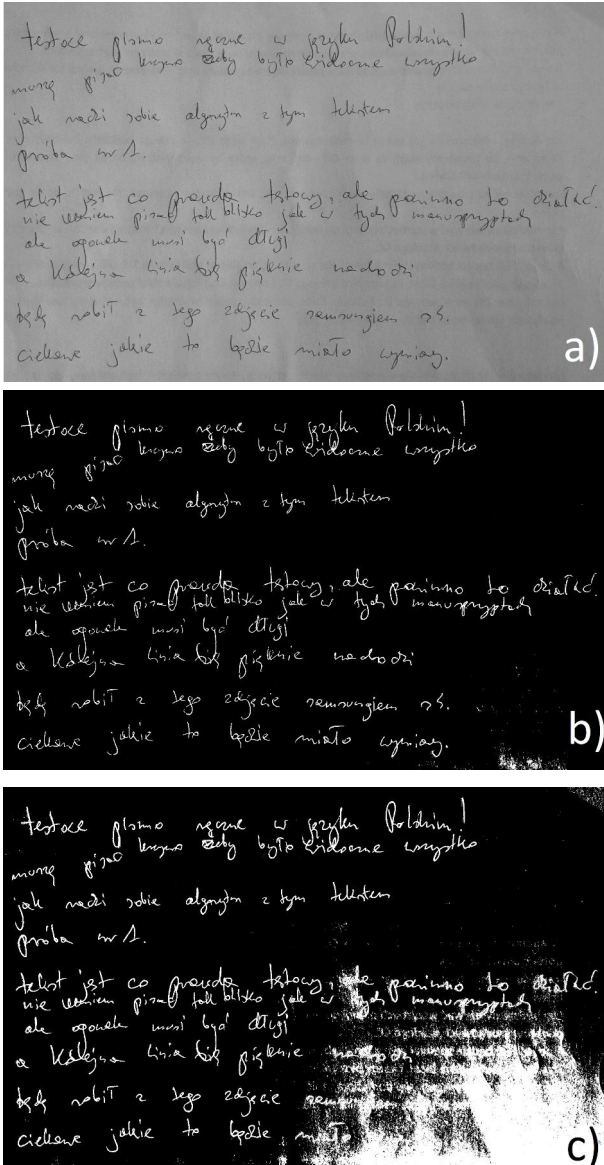 testoce pismo ręczne w języku Polskim!
muszę pisać krzywo żeby było widoczne wszystko
jak radzi sobie algorytm z tym tekstem
próba nr 1.
tekst jest co prawda testowy, ale powinno to działać.
nie umiem pisać tak blisko jak w tych manuskryptach
ale ogonek musi być długi
a Kolejna linia się pięknie nachodzi
będę robił z tego zdjęcie samsungiem s4.
ciekawe jakie to będzie miało wymiary.
a)
testoce pismo ręczne w języku Polskim!
muszę pisać krzywo żeby było widoczne wszystko
jak radzi sobie algorytm z tym tekstem
próba nr 1.
tekst jest co prawda testowy, ale powinno to działać.
nie umiem pisać tak blisko jak w tych manuskryptach
ale ogonek musi być długi
a Kolejna linia się pięknie nachodzi
będę robił z tego zdjęcie samsungiem s4.
ciekawe jakie to będzie miało wymiary.
b)
testoce pismo ręczne w języku Polskim!
muszę pisać krzywo żeby było widoczne wszystko
jak radzi sobie algorytm z tym tekstem
próba nr 1.
tekst jest co prawda testowy, ale powinno to działać.
nie umiem pisać tak blisko jak w tych manuskryptach
ale ogonek musi być długi
a Kolejna linia się pięknie nachodzi
będę robił z tego zdjęcie
ciekawe jakie to będzie miało
c)